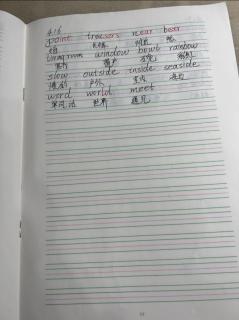 4.16
point trousers near bear
指 长裤 附近 熊
living room window bowl rainbow
客厅 窗户 彩虹
slow outside inside seaside
户外 室内 海边
word world meet
世界 遇见